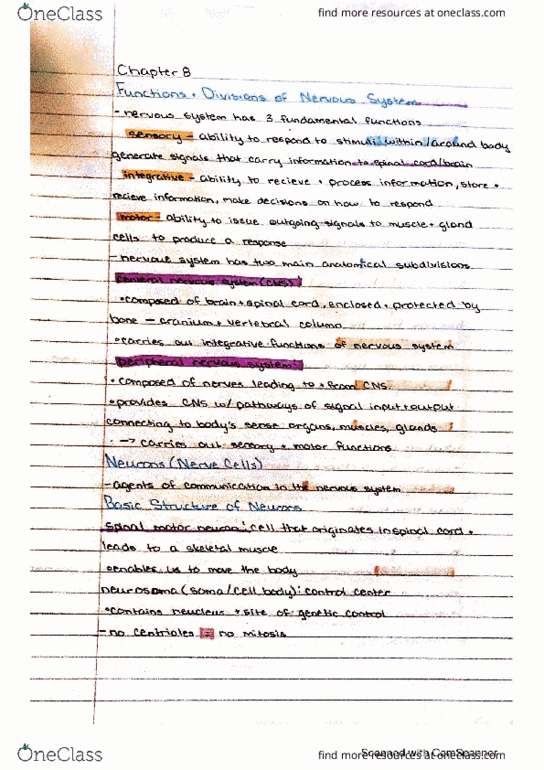 OneClass
find more resources at oneclass.com
Chapter 8
Functions + Divisions of Nervous System
- nervous system has 3 fundamental functions
sensory - ability to respond to stimuli within/around body
generate signals that carry information to spinal cord/brain
integrative - ability to recieve + process information, store +
recieve information, make decisions on how to respond
motor - ability to issue outgoing signals to muscle + gland
cells to produce a response
- nervous system has two main anatomical subdivisions
central nervous system (CNS):
• composed of brain + spinal cord, enclosed + protected by
bone - cranium + vertebral column
• carries out integrative functions of nervous system
peripheral nervous system:
• composed of nerves leading to + from CNS
• provides CNS w/ pathways of signal input + output
connecting to body's sense organs, muscles, glands
• → carries out sensory + motor functions
Neurons (Nerve Cells)
- agents of communication in the nervous system
Basic Structure of Neurons
Spinal motor neuron: cell that originates in spinal cord +
leads to a skeletal muscle
• enables us to move the body
neurosoma (soma/cell body): control center
• contains neucleus + site of genetic control
- no centrioles = no mitosis
OneClass
find more resources at oneclass.com
Scanned with CamScanner